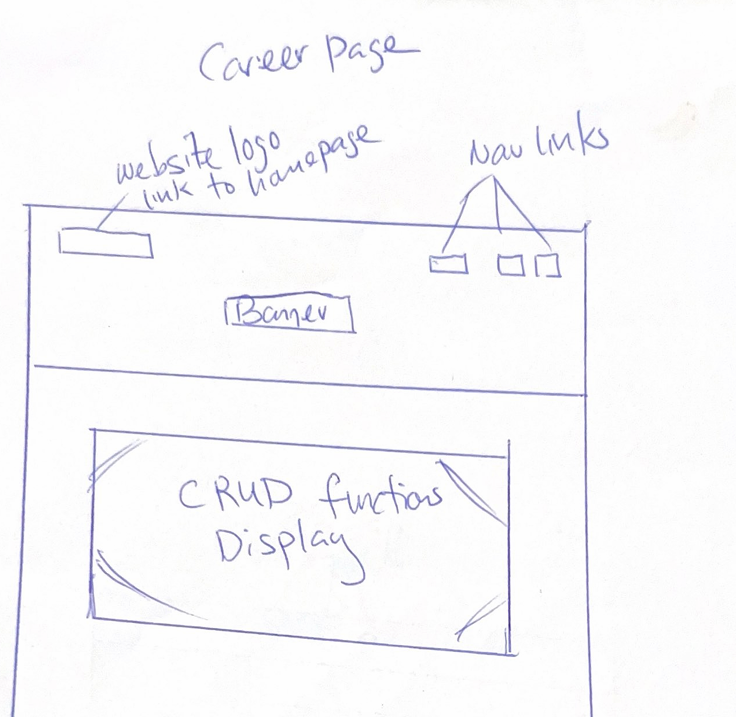 Career Page
website logo
link to homepage
Nav links
Banner
CRUD functions
Display